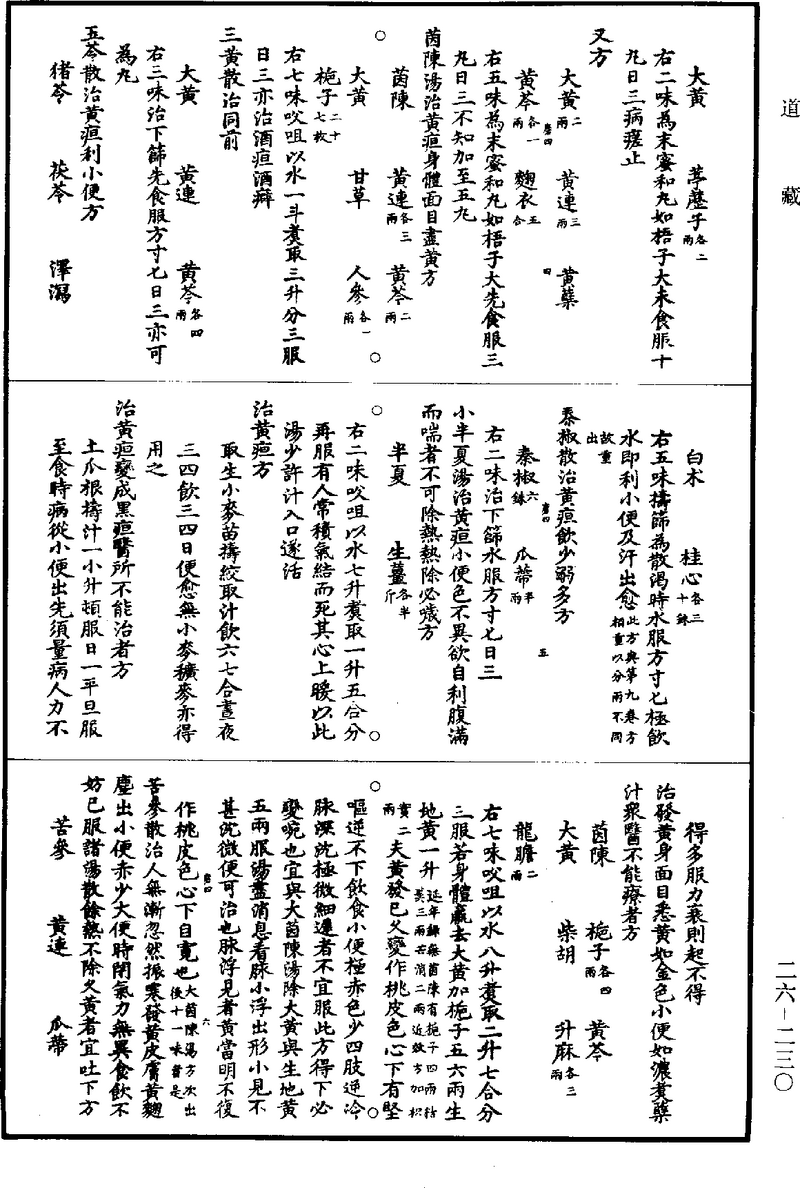 道藏
大黄 葶藶子各二兩
右二味為末蜜和丸如梧子大未食服十
九日三病瘥止
又方
大黄二兩 黄連三兩 黄蘗四
黄芩各一兩 麴衣五合
右五味為末蜜和丸如梧子大先食服三
九日三不知加至五丸
茵陳湯治黄疸身體面目盡黄方
茵陳 黄連各三兩 黄芩二兩
大黄 甘草 人參各一兩
梔子二十七枚
右七味㕮咀以水一斗煑取三升分三服
日三亦治酒疸酒癖
三黄散治同前
大黄 黄連 黄芩各四兩
右三味治下篩先食服方寸匕日三亦可
為丸
五苓散治黄疸利小便方
猪苓 茯苓 澤瀉
白术 桂心各三十銖
右五味擣篩為散渴時水服方寸匕極飲
水即利小便及汗出愈此方與第九卷方相重以分兩不同故重出
秦椒散治黄疸飲少溺多方
秦椒六銖 瓜蒂半兩
右二味治下篩水服方寸匕日三
小半夏湯治黄疸小便色不異欲自利腹滿
而喘者不可除熱熱除必噦方
半夏 生薑各半斤
右二味㕮咀以水七升煑取一升五合分
再服有人常積氣結而死其心上暖以此
湯少許汁入口遂活
治黄疸方
取生小麥苗擣絞取汁飲六七合晝夜
三四飲三四日便愈無小麥穬麥亦得
用之
治黄疸變成黑疸醫所不能治者方
土瓜根擣汁一小升頓服日一平旦服
至食時病從小便出先須量病人力不
得多服力衰則起不得
治發黄身面目悉黄如金色小便如濃煑蘗
汁衆醫不能療者方
茵陳 梔子各四兩 黄芩
大黄 柴胡 升麻各三兩
龍膽二兩
右七味㕮咀以水八升煑取二升七合分
三服若身體羸去大黄加梔子五六兩生
地黄一升延年錄無茵陳有梔子四兩栝蔞三兩芒消二兩近效方加枳實二兩夫黄發已久變作桃皮色心下有堅
嘔逆不下飲食小便極赤色少四肢逆冷
脉深沈極微細遲者不宜服此方得下必
變噦也宜與大茵陳湯除大黄與生地黄
五兩服湯盡消息看脉小浮出形小見不
甚沈微便可治也脉浮見者黄當明不復
作桃皮色心下自寛也大茵陳湯方次出後十一味者是
苦參散治人無漸忽然振寒發黄皮膚黄麴
塵出小便赤少大便時閉氣力無異食飲不
妨已服諸湯散餘熱不除久黄者宜吐下方
苦參 黄連 瓜蒂
二六-二三〇